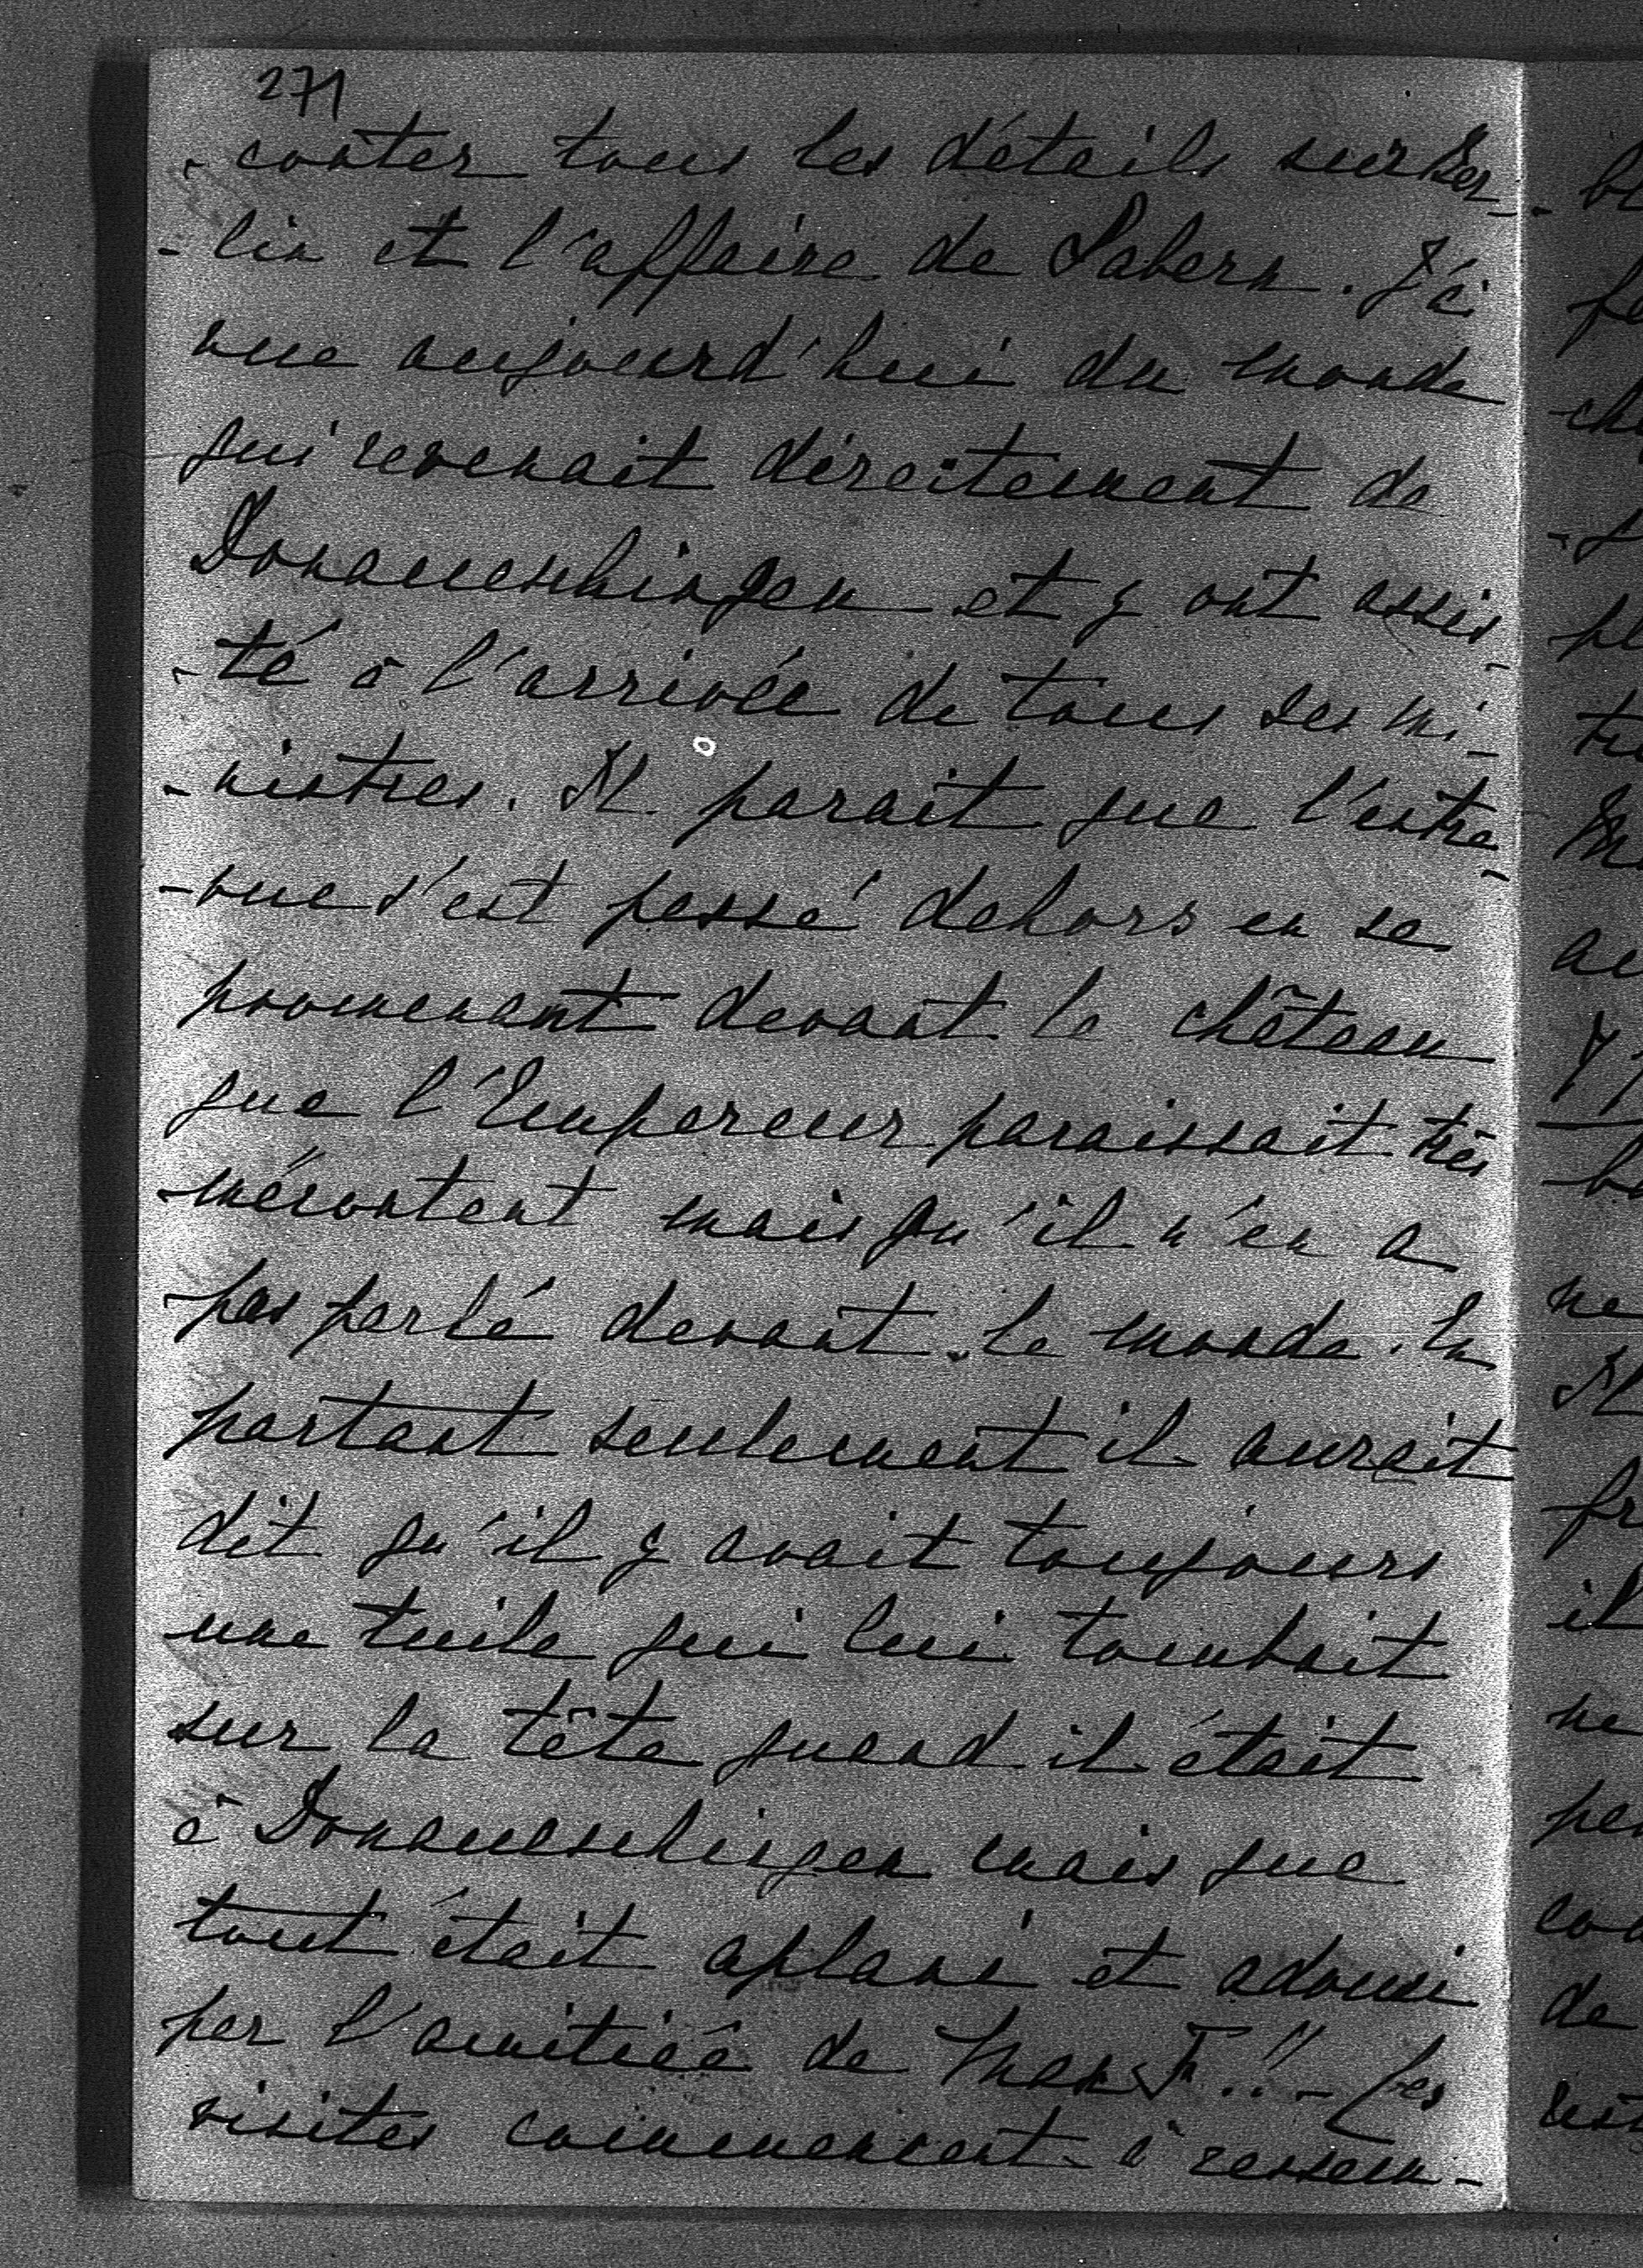 271
-conter tous les détails sur Ber-
-lin et l'affaire de Sabern. J'ai
vue aujourd'hui du monde
qui revenait diréctement de
Donaueschingen et y ont assis-
-té à l'arrivée de tous ses mi-
-nistres. Il parait que l'entre-
-vue s'est passé dehors en se
promenant devant le château
que l'Empereur paraissait très
mécontent mais qu'il n'en a
pas parlé devant le monde. En
partant seulement il aurait
dit qu'il y avait toujours
une tuile qui lui tombait
sur la tête quand il était
à Donaueschingen mais que
tout était aplani et adouci
par l'amitiée de Max F..!! - Les
visites commencent à ressem-